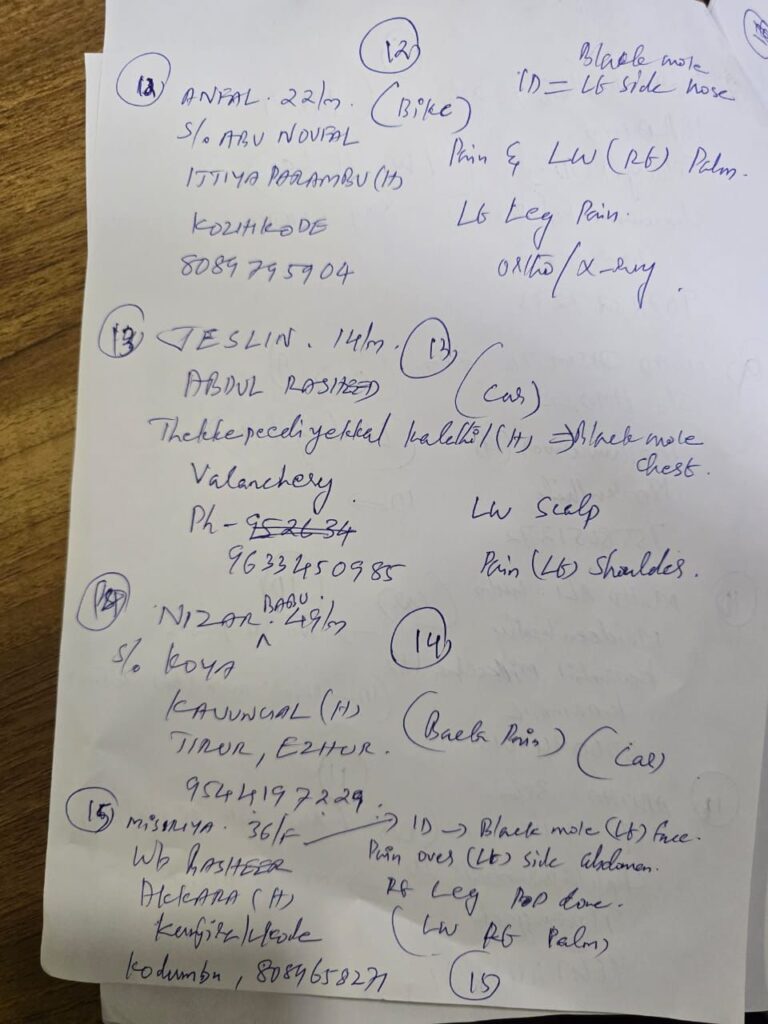 12
12 ANFAL. 22/m. (Bike)
S/o ABU NOUFAL
ITTIYA PARAMBU (H)
KOZHIKODE
8089795904
Black mole
ID = Lt side nose
Pain & LW (Rt) Palm.
Lt Leg Pain.
ortho/x-ray
13 JESLIN. 14/m. 13
ABDUL RASHEED (Car)
kalathil (H) ⇒ Black mole
chest.
Valanchery
Ph - 952634
9633450985
LW Scalp
Pain (Lt) Shoulder.
NIZAR BABU. 49/m
S/o KOYA
14
KAVUNGAL (H)
TIRUR, EZHUR.
(Back Pain) (Car)
9544197229.
15 MISIRIYA. 36/F → ID → Black mole (Lt) face.
W/o BASHEER
Pain over (Lt) side abdomen.
AKKARA (H)
Rt Leg POP done.
(LW Rt Palm)
Kodumbu, 8089658271
15